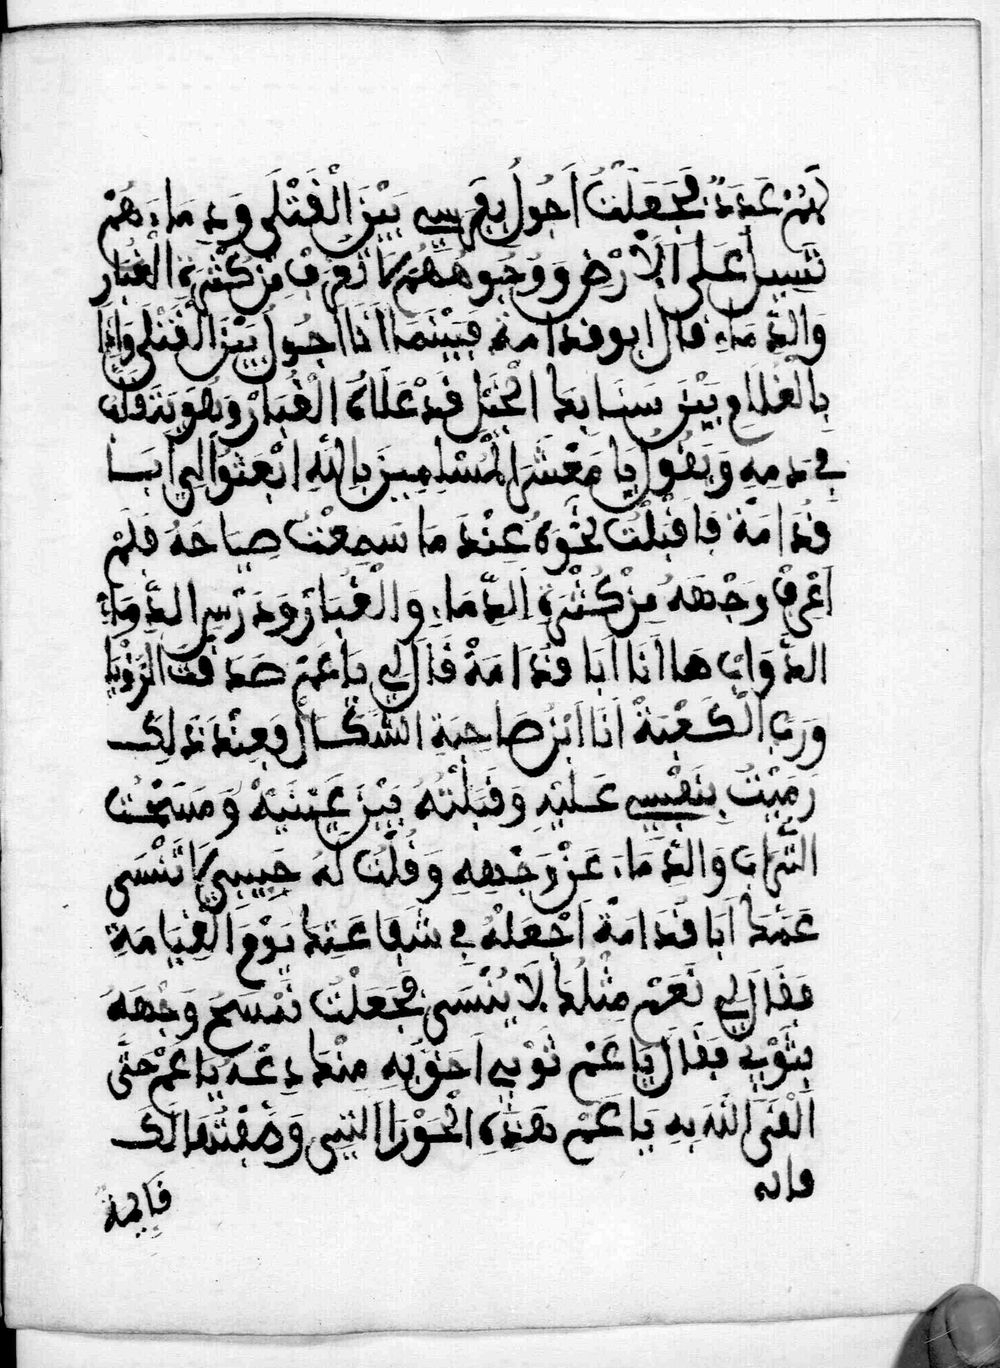 لهم عدد فجعلت اجول بفرسي بين القتلى ودماءهم
تسيل على الارض ووجوههم لا تعرف من كثرة الغبار
والدماء قال ابو قدامة فبينما انا اجول بين القتلى واذا
بالغلام بين سنابك الخيل قد علاه الغبار وهو يتقلب
في دمه ويقول يا معشر المسلمين بالله ابعثوا لي ابا
قدامة فاقبلت نحوه عند ما سمعت صياحه فلم
اعرف وجهه من كثرة الدماء والغبار ودرس الدماء
الدواب ها انا ابا قدامة قال لي يا عم صدقت الرؤيا
ورب الكعبة انا ابن صاحبة الشكال فعند ذلك
رميت بنفسي عليه وقبلته بين عينيه ومسحت
التراب والدماء عن وجهه وقلت له حبيبي لا تنسى
عمك ابا قدامة اجعله في شفاعتك يوم القيامة
فقال لي نعم مثلك لا ينسى فجعلت نمسح وجهه
بثوبي فقال يا عم ثوبي احق به منك دعه يا عم حتى
القى الله به يا عم هذه الحورا التي وصفتها لك
قايمة